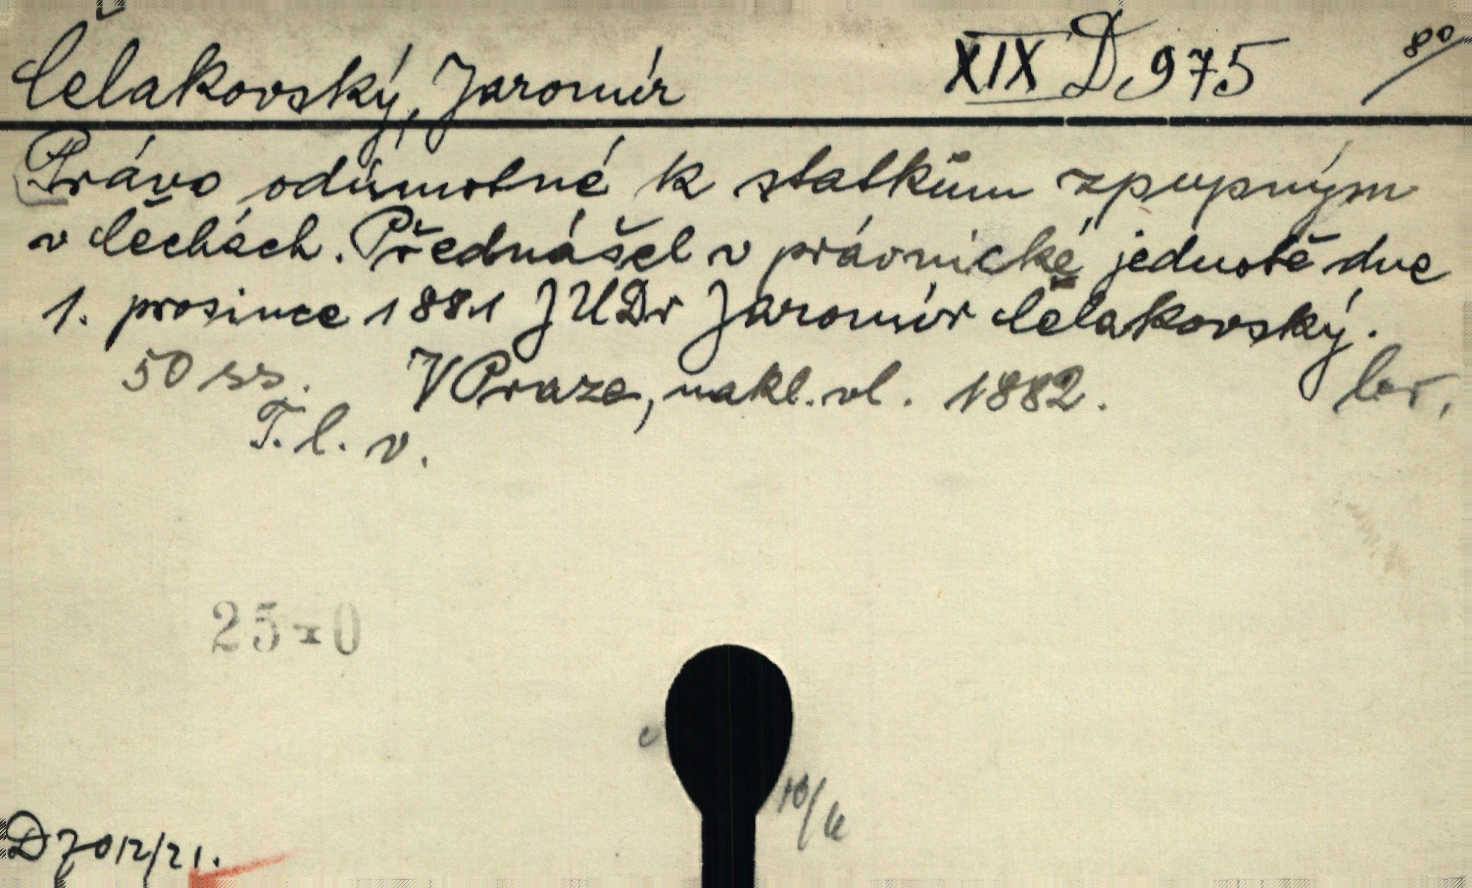 Čelakovský, Jaromír XIX D 975 80
Právo odúmrtné k statkům zpupným
v Čechách. Přednášel v právnické jednotě dne
1. prosince 1881 JUDr Jaromír Čelakovský.
50 ss. V Praze, nakl. vl. 1882. br.
T. l. v.
25-0
D 7012/21.